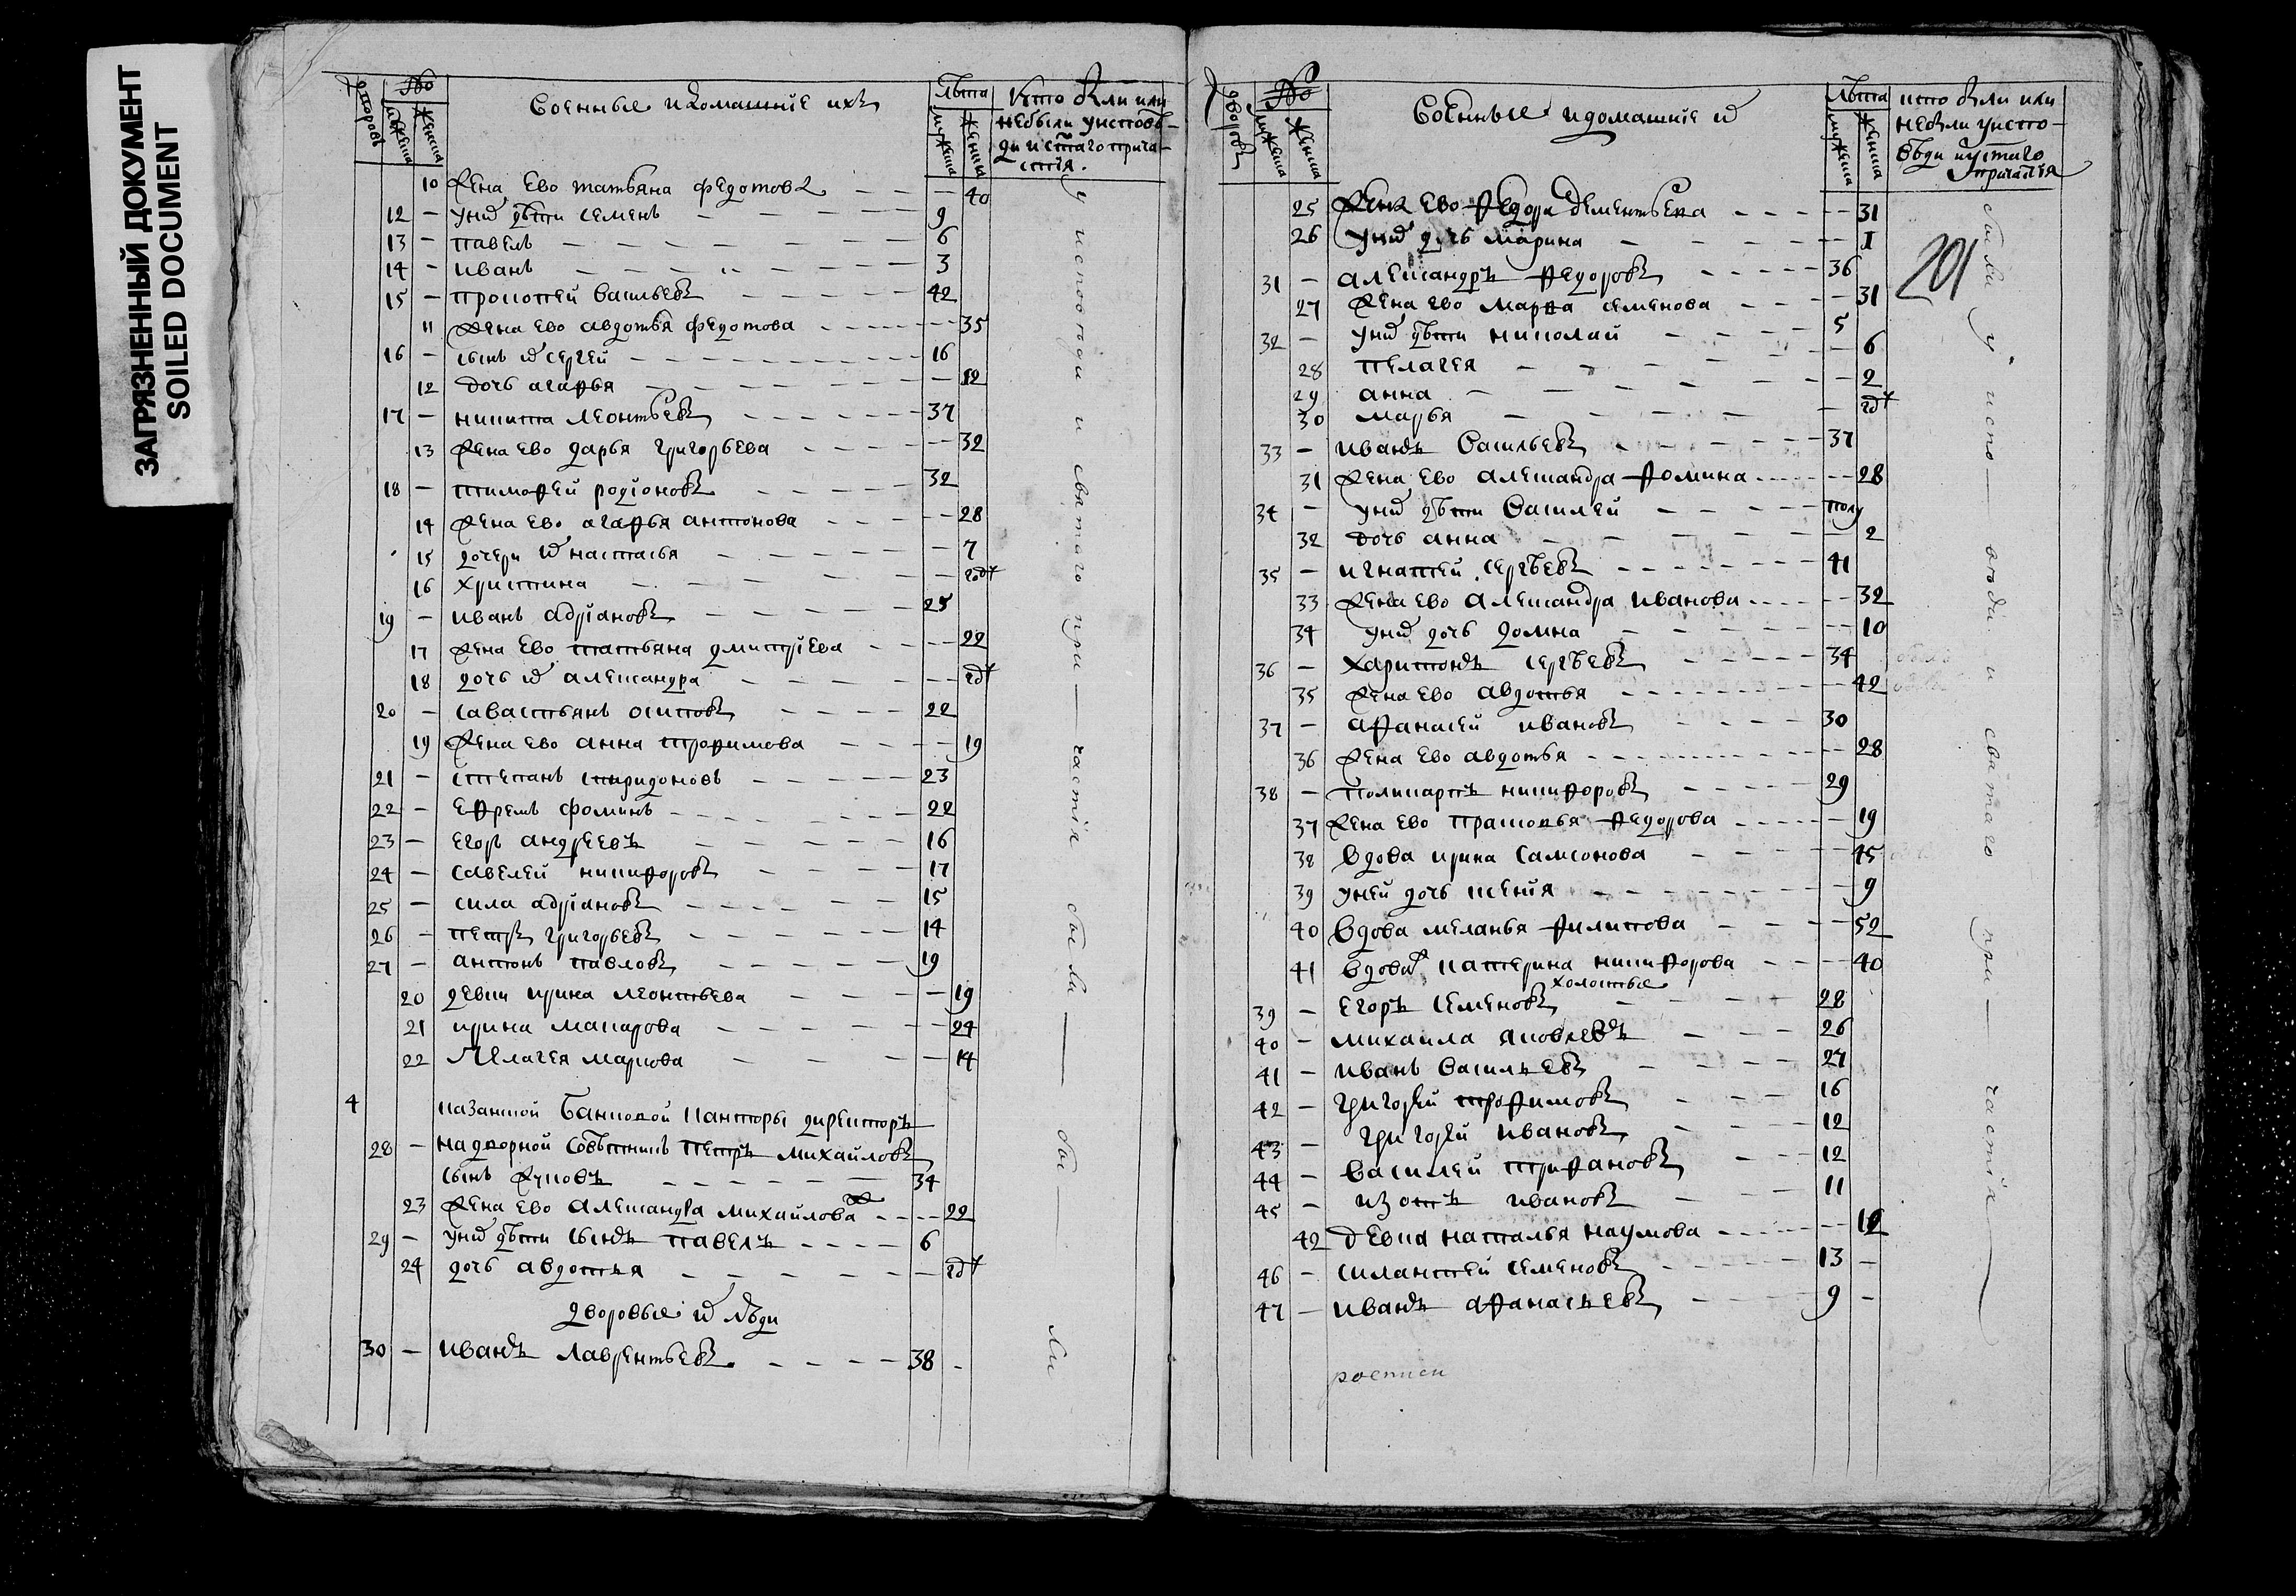 ЗАГРЯЗНЕННЫЙ ДОКУМЕНТ
SOILED DOCUMENT
№
Военные и домашние ихъ
лѣта
кто были или
небыли уисповѣ-
ди и стаго прича-
стия.
дворовъ
мужеска
женска
мужеска
женска
10 жена ево татьяна федотова 40
12 - у них дѣти семенъ 9
13 - павелъ 6
14 - иванъ 3
15 - прокопей васильевъ 42
11 жена ево авдотья федотова 35
16 - сынъ их сергей 16
12 дочь агафья 12
17 - никита леонтьевъ 37
13 жена ево дарья григорьева 32
18 - тимофей родионовъ 32
14 жена ево агафья антонова 28
15 дочери их настасья 7
16 христина год
19 - иванъ адрїановъ 25
17 жена ево татьяна дмитрїева 22
18 дочь их александра год
20 - савастьянъ осиповъ 22
19 жена ево анна трофимова 19
21 - степанъ спиридоновъ 23
22 - ефремъ фоминъ 22
23 - егоръ андреевъ 16
24 - савелей никифоровъ 17
25 - сила адрїановъ 15
26 - петръ григорьевъ 14
27 - антонъ павловъ 19
20 девки ирина леонтьева 19
21 ирина макарова 24
22 пелагея маркова 14
4 казанской банковой канторы директоръ
28 - надворной совѣтникъ петръ михайловъ
сынъ жуковъ 34
23 жена ево александра михайлова 22
29 - у них дѣти сынъ павелъ 6
24 дочь авдотья год
дворовые их люди
30 - иванъ лаврентьевъ 38
у исповеди и святаго при- частїя бы ли - бы - ли
№
Военные и домашние их
лѣта
кто были или
небыли уиспо-
вѣди и стаго
причастїя
дворовъ
мужеска
женска
мужеска
женска
201
25 жена ево федора дементьева 31
26 у них дочь марина 1
31 - александръ федоровъ 36
27 жена ево марфа семенова 31
32 - у них дѣти николай 5
28 пелагея 6
29 анна 2
30 марья год
33 - иванъ васильевъ 37
31 жена ево александра фомина 28
34 - у них дѣти василей полу
32 дочь анна 2
35 - игнатей сергѣевъ 41
33 жена ево александра иванова 32
34 у них дочь домна 10
36 - харитонъ сергѣевъ 34
35 жена ево авдотья 42
37 - афанасей ивановъ 30
36 жена ево авдотья 28
38 - поликарпъ никифоровъ 29
37 жена ево прасковья федорова 19
38 вдова ирина самсонова 45
39 у ней дочь ксенїя 9
40 вдова меланья филипова 52
41 вдова катерина никифорова 40
холостые
39 - егоръ семеновъ 28
40 - михаила яковлевъ 26
41 - иванъ васильевъ 27
42 - григорей трофимовъ 16
43 - григорей ивановъ 12
44 - василей трифановъ 12
45 - изотъ ивановъ 11
42 девка наталья наумова 12
46 - силантей семеновъ 13 -
47 - иванъ афанасьевъ 9 -
были у испо- вѣди и святаго при- частїя
росписи